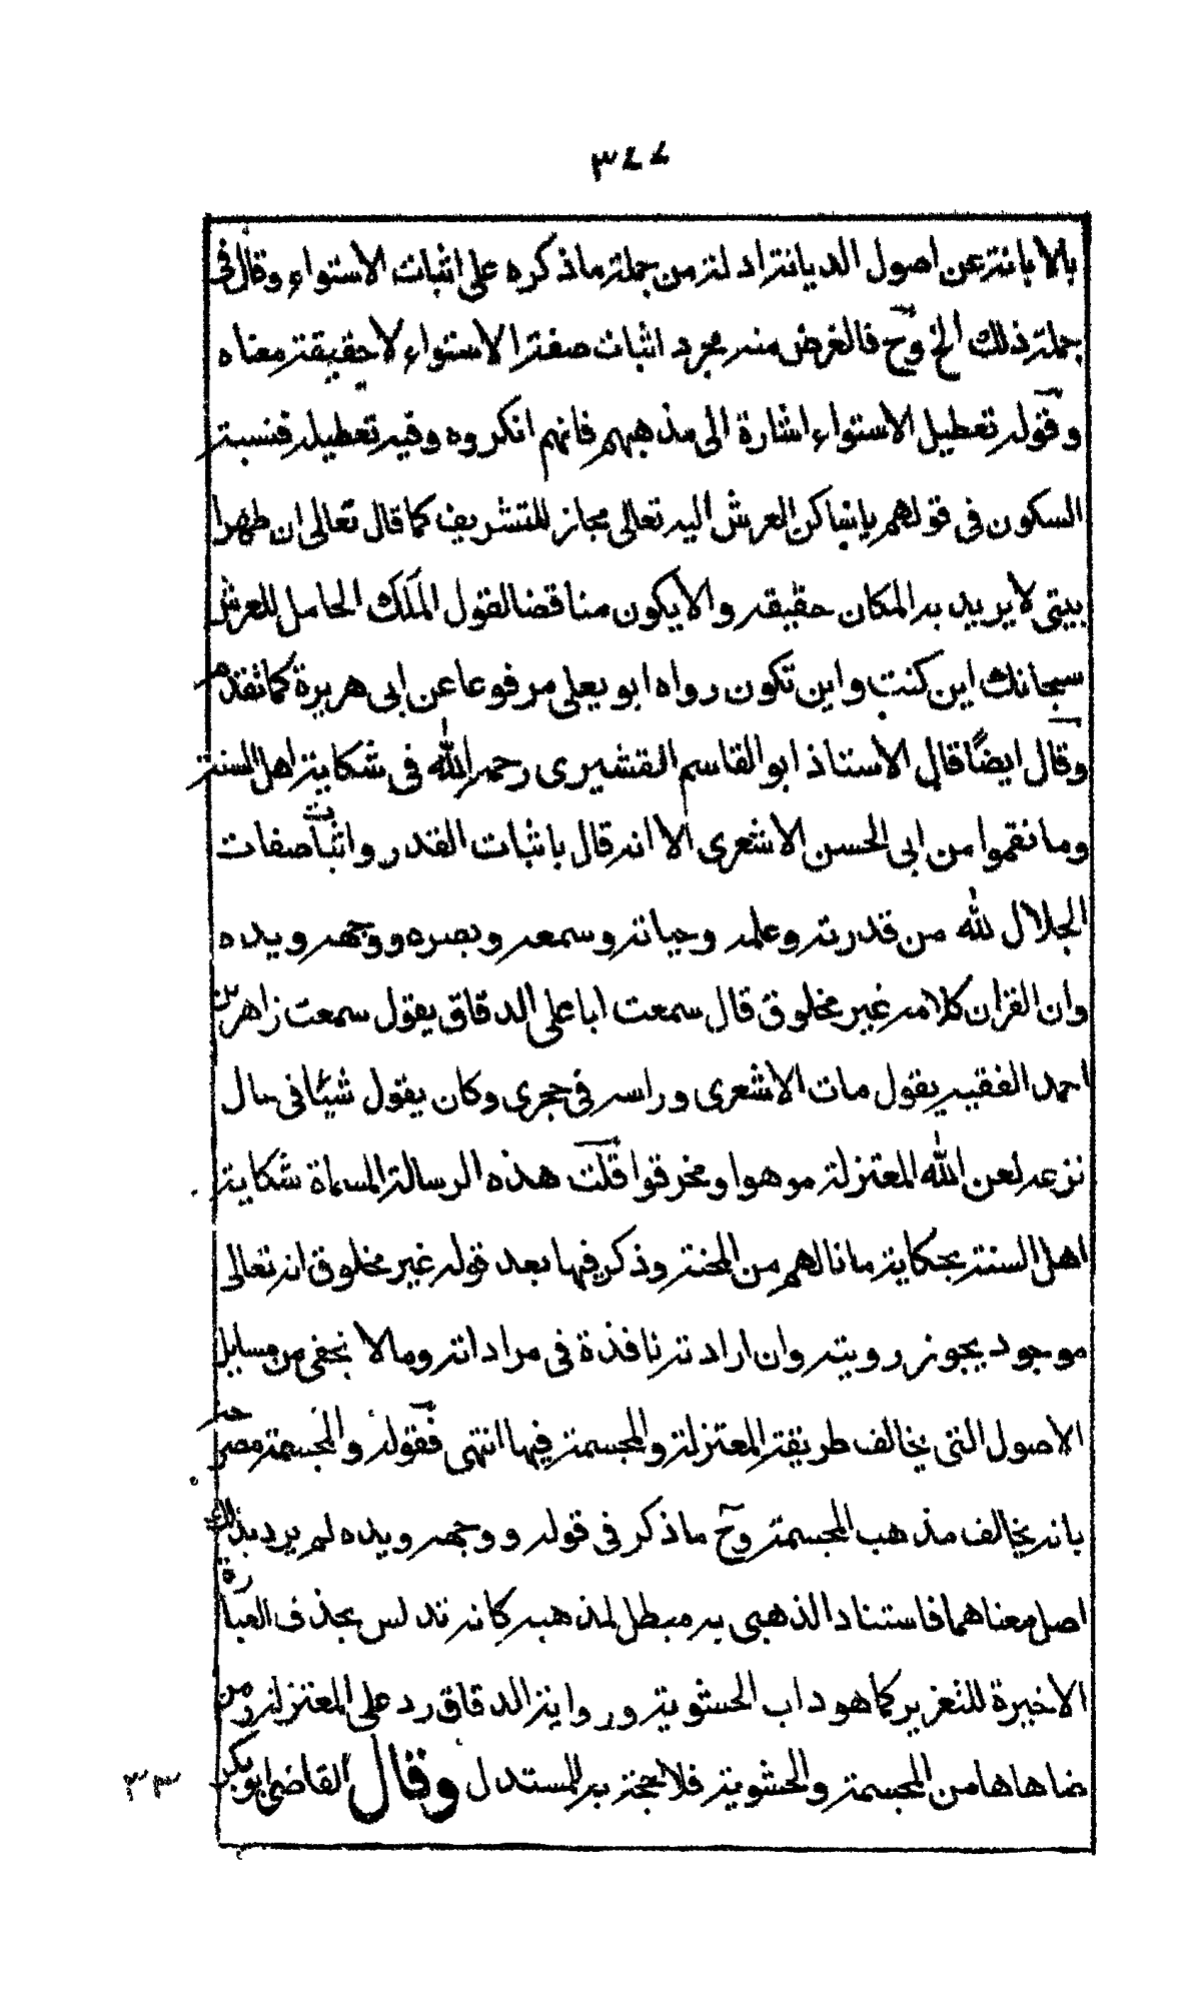 ٣٤٧
بالابانة عن اصول الديانة ادلة من جملة ما ذكره على اثبات الاستواء وقال فى
جملة ذلك الخ وح فالغرض منه مجرد اثبات صفة الاستواء لا حقيقة معناه
وقوله تعطيل الاستواء اشارة الى مذهبهم فانهم انكروه وفيه تعطيله فنسبة
السكون فى قولهم يا ساكن العرش اليه تعالى مجاز للتشريف كما قال تعالى ان طهرا
بيتى لا يريد به المكان حقيقه والا يكون مناقضا لقول الملك الحامل للعرش
سبحانك اين كنت واين تكون رواه ابو يعلى مرفوعا عن ابى هريرة كما تقدم
وقال ايضًا قال الاستاذ ابو القاسم القشيرى رحمه الله فى شكاية اهل السنة
وما نقموا من ابى الحسن الاشعرى الا انه قال باثبات القدر واثبات صفات
الجلال لله من قدرته وعلمه وحياته وسمعه وبصره ووجهه ويده
وان القران كلامه غير مخلوق قال سمعت ابا على الدقاق يقول سمعت زاهر بن
احمد الفقيه يقول مات الاشعرى وراسه فى حجرى وكان يقول شيئا فى حال
نزعه لعن الله المعتزلة موهوا ومخرقوا قلت هذه الرسالة المسماة شكاية
اهل السنة بحكاية ما نالهم من المحنة وذكر فيها بعد قوله غير مخلوق انه تعالى
موجود يجوز رويته وان ارادته نافذة فى مراداته وما لا يخفى من مسايل
الاصول التى يخالف طريقة المعتزلة والمجسمة فيها انتهى فقوله والمجسمة مصرحة
بانه يخالف مذهب المجسمة وح ما ذكر فى قوله ووجهه ويده لم يرد بذلك
اصل معناهما فاستناد الذهبى به مبطل لمذهبه كانه تدلس بحذف العبارة
الاخيرة للتغرير كما هو داب الحشوية ورواية الدقاق رد على المعتزلة ومن
ضاهاها من المجسمة والحشوية فلا حجة به للمستدل وقال القاضى ابو بكر
٣٣